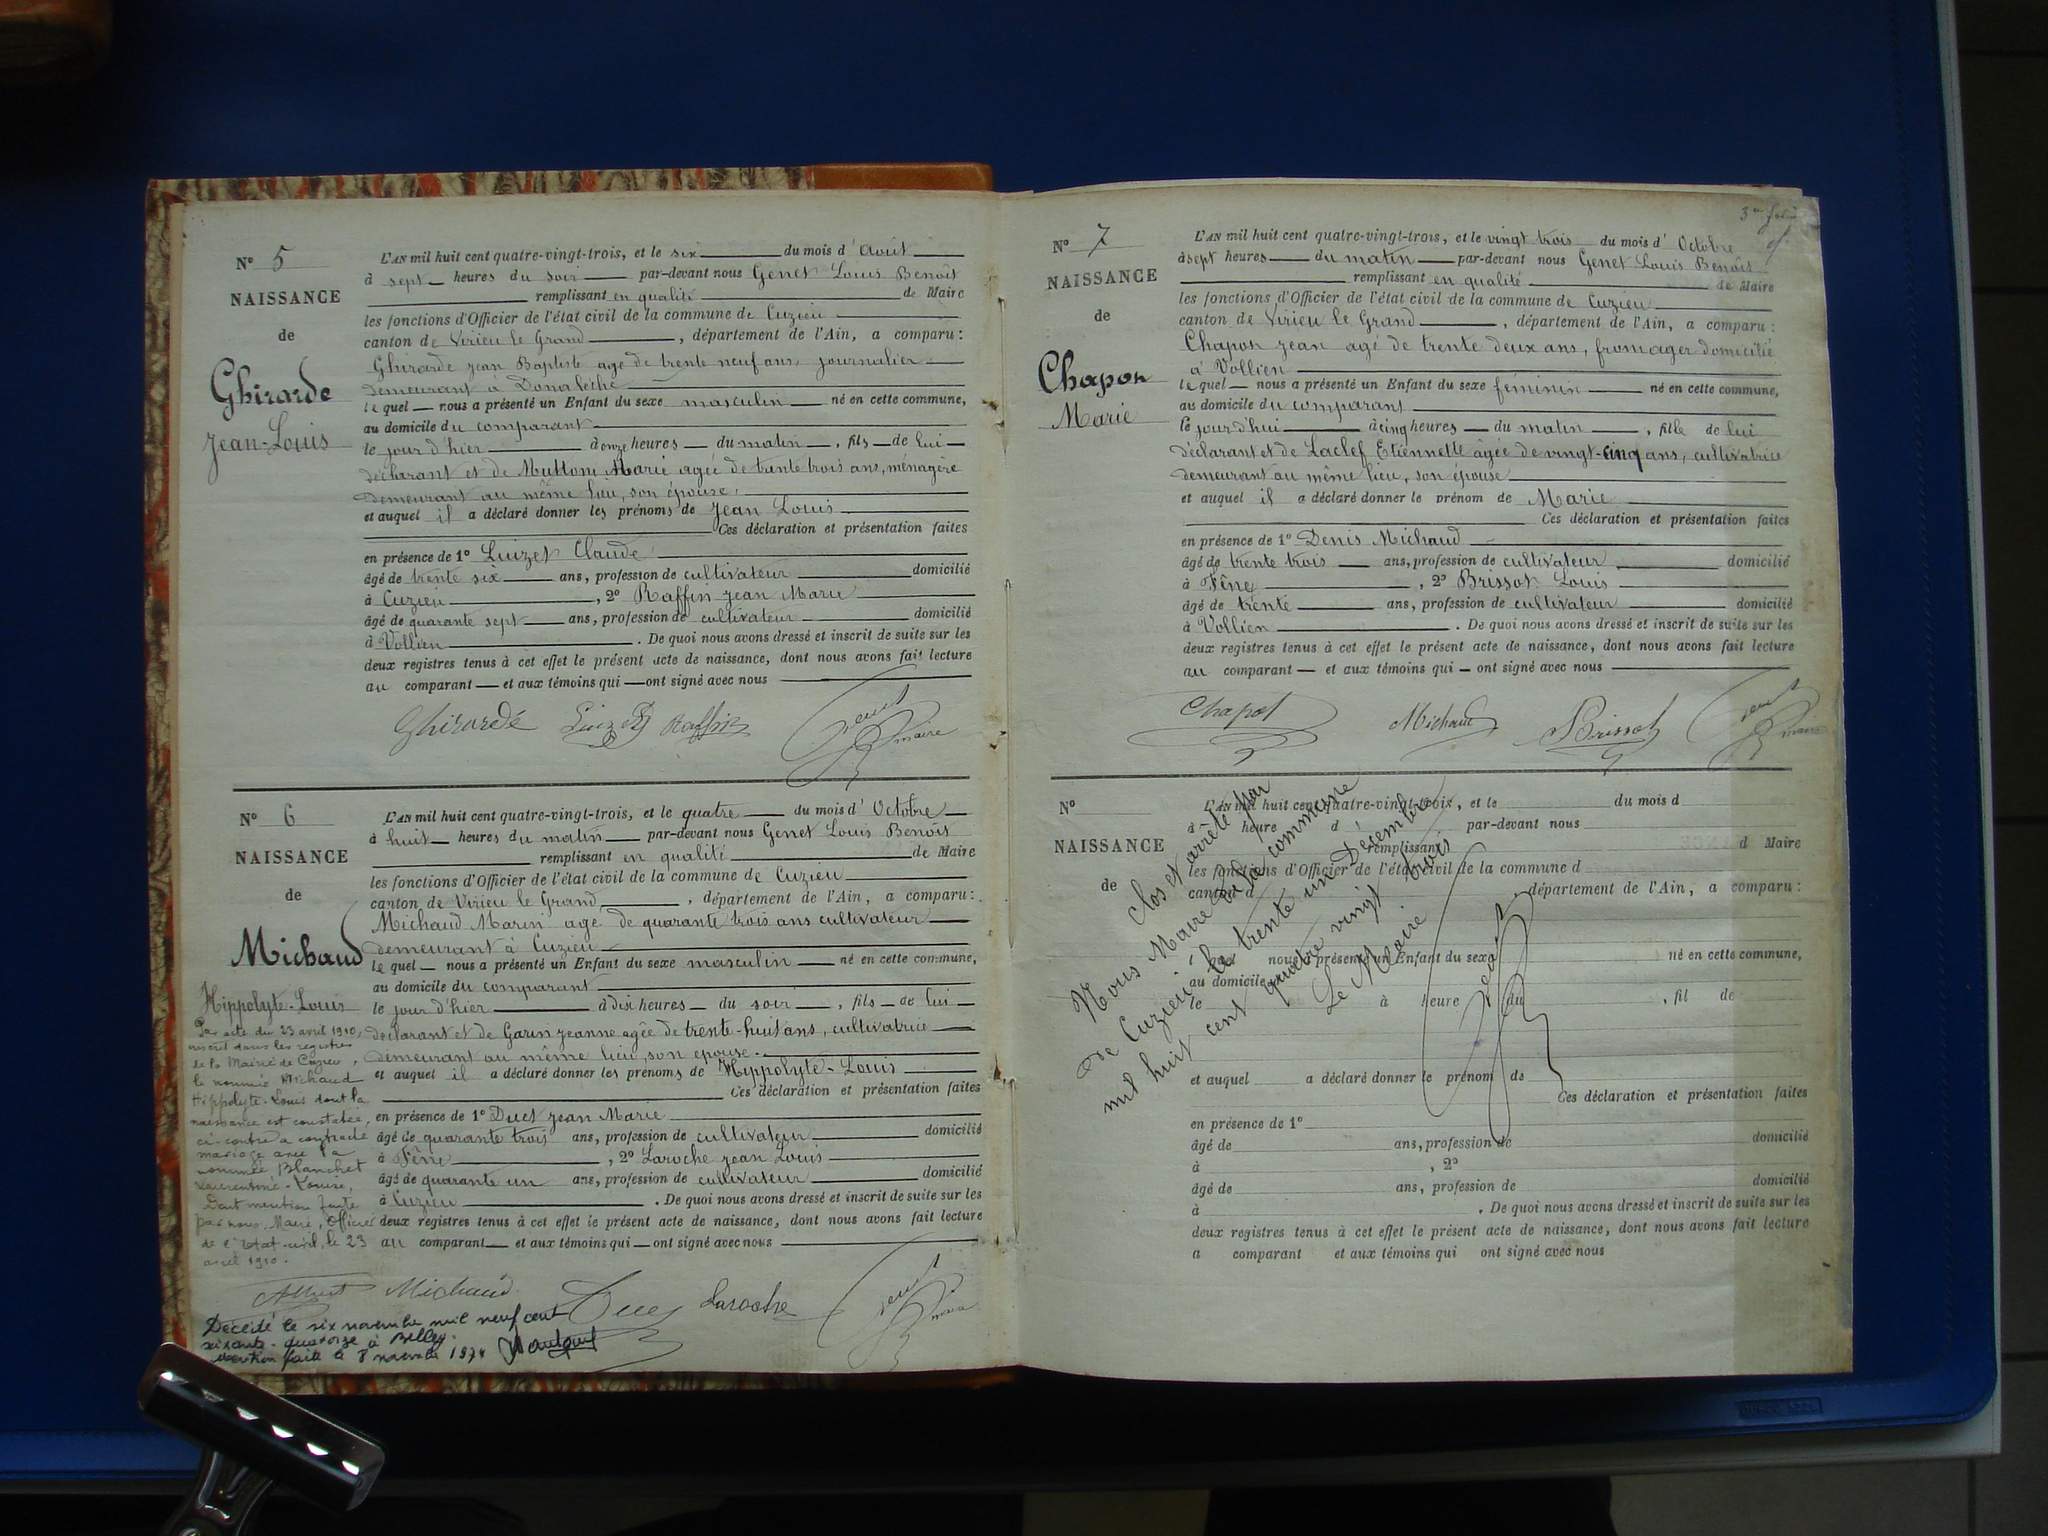 N° 5
NAISSANCE
de
Ghirarde
Jean-Louis
L'AN mil huit cent quatre-vingt-trois, et le six du mois d'Août
à sept heures du soir par-devant nous Genet Louis Benoît
remplissant en qualité de Maire
les fonctions d'Officier de l'état civil de la commune de Cuzieu
canton de Virieu le Grand, département de l'Ain, a comparu :
Ghirarde Jean Baptiste agé de trente neuf ans, journalier
demeurant à
le quel nous a présenté un Enfant du sexe masculin né en cette commune,
au domicile du comparant
le jour d'hier à onze heures du matin, fils de lui
déclarant et de Muttoni Marie agée de trente trois ans, ménagère
demeurant au même lieu, son épouse,
et auquel il a déclaré donner les prénoms de Jean Louis
Ces déclaration et présentation faites
en présence de 1° Luizet Claude
âgé de trente six ans, profession de cultivateur domicilié
à Cuzieu, 2° Raffin Jean Marie
âgé de quarante sept ans, profession de cultivateur domicilié
à Vollien. De quoi nous avons dressé et inscrit de suite sur les
deux registres tenus à cet effet le présent acte de naissance, dont nous avons fait lecture
au comparant et aux témoins qui ont signé avec nous
Ghirardé Luizet Raffin Genet maire
N° 6
NAISSANCE
de
Michaud
Hippolyte-Louis
Par acte du 23 avril 1910,
inscrit dans les registres
de la Mairie de Cuzieu,
le nommé Michaud
Hippolyte-Louis dont la
naissance est constatée
ci-contre a contracté
mariage avec la
nommée Blanchet
Louise,
Dont mention faite
par nous, Maire, Officier
de l'Etat-civil, le 23
avril 1910.
L'AN mil huit cent quatre-vingt-trois, et le quatre du mois d'Octobre
à huit heures du matin par-devant nous Genet Louis Benoît
remplissant en qualité de Maire
les fonctions d'Officier de l'état civil de la commune de Cuzieu
canton de Virieu le Grand, département de l'Ain, a comparu :
Michaud Marin agé de quarante trois ans cultivateur
demeurant à Cuzieu
le quel nous a présenté un Enfant du sexe masculin né en cette commune,
au domicile du comparant
le jour d'hier à dix heures du soir, fils de lui
déclarant et de Garin Jeanne agée de trente-huit ans, cultivatrice
demeurant au même lieu, son épouse.
et auquel il a déclaré donner les prénoms de Hippolyte-Louis
Ces déclaration et présentation faites
en présence de 1° Duct Jean Marie
âgé de quarante trois ans, profession de cultivateur domicilié
à Fêne, 2° Laroche Jean Louis
âgé de quarante un ans, profession de cultivateur domicilié
à Cuzieu. De quoi nous avons dressé et inscrit de suite sur les
deux registres tenus à cet effet le présent acte de naissance, dont nous avons fait lecture
au comparant et aux témoins qui ont signé avec nous
Michaud Laroche Genet maire
Décédé le six novembre mil neuf cent
soixante-quatorze à Belley.
Mention faite le 8 novembre 1974
N° 7
NAISSANCE
de
Chapon
Marie
L'AN mil huit cent quatre-vingt-trois, et le vingt trois du mois d'Octobre
à sept heures du matin par-devant nous Genet Louis Benoît
remplissant en qualité de Maire
les fonctions d'Officier de l'état civil de la commune de Cuzieu
canton de Virieu le Grand, département de l'Ain, a comparu :
Chapon Jean agé de trente deux ans, fromager domicilié
à Vollien
le quel nous a présenté un Enfant du sexe féminin né en cette commune,
au domicile du comparant
le jour d'hui à cinq heures du matin, fille de lui
déclarant et de Laclef Etiennette âgée de vingt-cinq ans, cultivatrice
demeurant au même lieu, son épouse
et auquel il a déclaré donner le prénom de Marie
Ces déclaration et présentation faites
en présence de 1° Denis Michaud
âgé de trente trois ans, profession de cultivateur domicilié
à Fêne, 2° Brissot Louis
âgé de trente ans, profession de cultivateur domicilié
à Vollien. De quoi nous avons dressé et inscrit de suite sur les
deux registres tenus à cet effet le présent acte de naissance, dont nous avons fait lecture
au comparant et aux témoins qui ont signé avec nous
Chapot Michaud Brissot Genet maire
N°
NAISSANCE
de
L'AN mil huit cent quatre-vingt-trois, et le du mois d
à heure d par-devant nous
remplissant d Maire
les fonctions d'Officier de l'état civil de la commune d
canton d département de l'Ain, a comparu :
quel nous a présenté un Enfant du sexe né en cette commune,
au domicile
le à heure du, fil de
et auquel a déclaré donner le prénom de
Ces déclaration et présentation faites
en présence de 1°
âgé de ans, profession de domicilié
à, 2°
âgé de ans, profession de domicilié
à. De quoi nous avons dressé et inscrit de suite sur les
deux registres tenus à cet effet le présent acte de naissance, dont nous avons fait lecture
a comparant et aux témoins qui ont signé avec nous
Clos et arrêté par
Nous Maire de la commune
de Cuzieu le trente un Décembre
mil huit cent quatre vingt trois
Le Maire
Genet